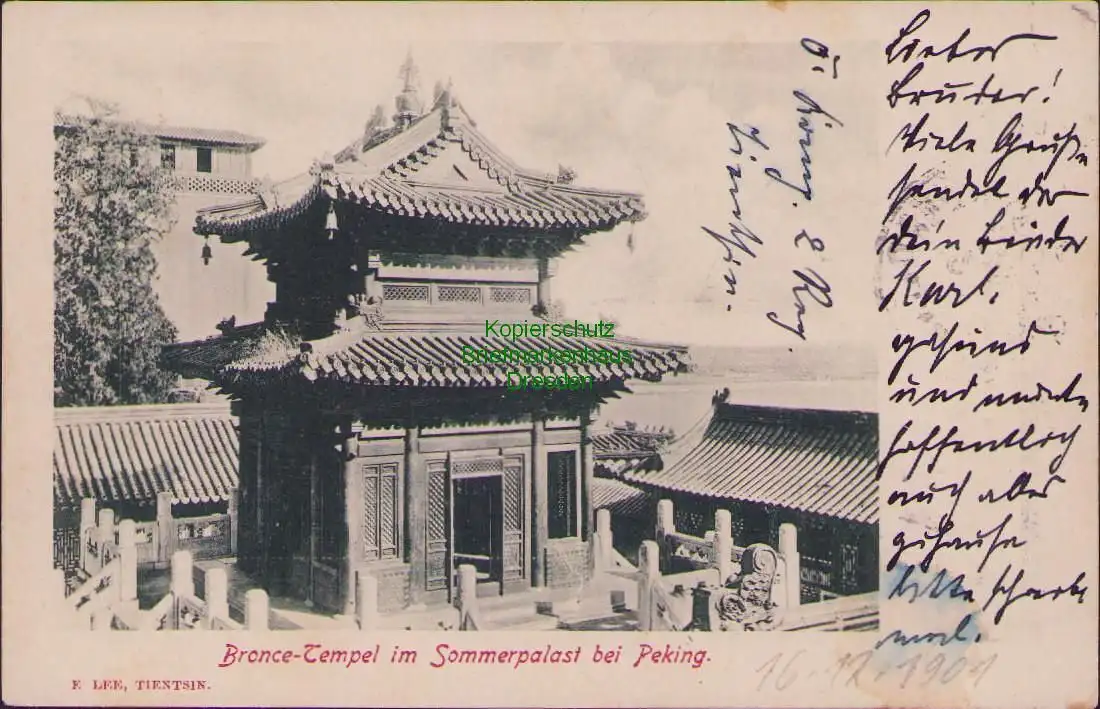 Lieber
Bruder!
Viele Grüße
sendet der
dein Bruder
Karl.
gesund
und
hoffentlich
auch alles
zuhause
bitte schreibe
mal.
2
Tientsin.
Kopierschutz
Briefmarkenhaus
Dresden
Bronce-Tempel im Sommerpalast bei Peking.
16.12.1901
F. LEE, TIENTSIN.